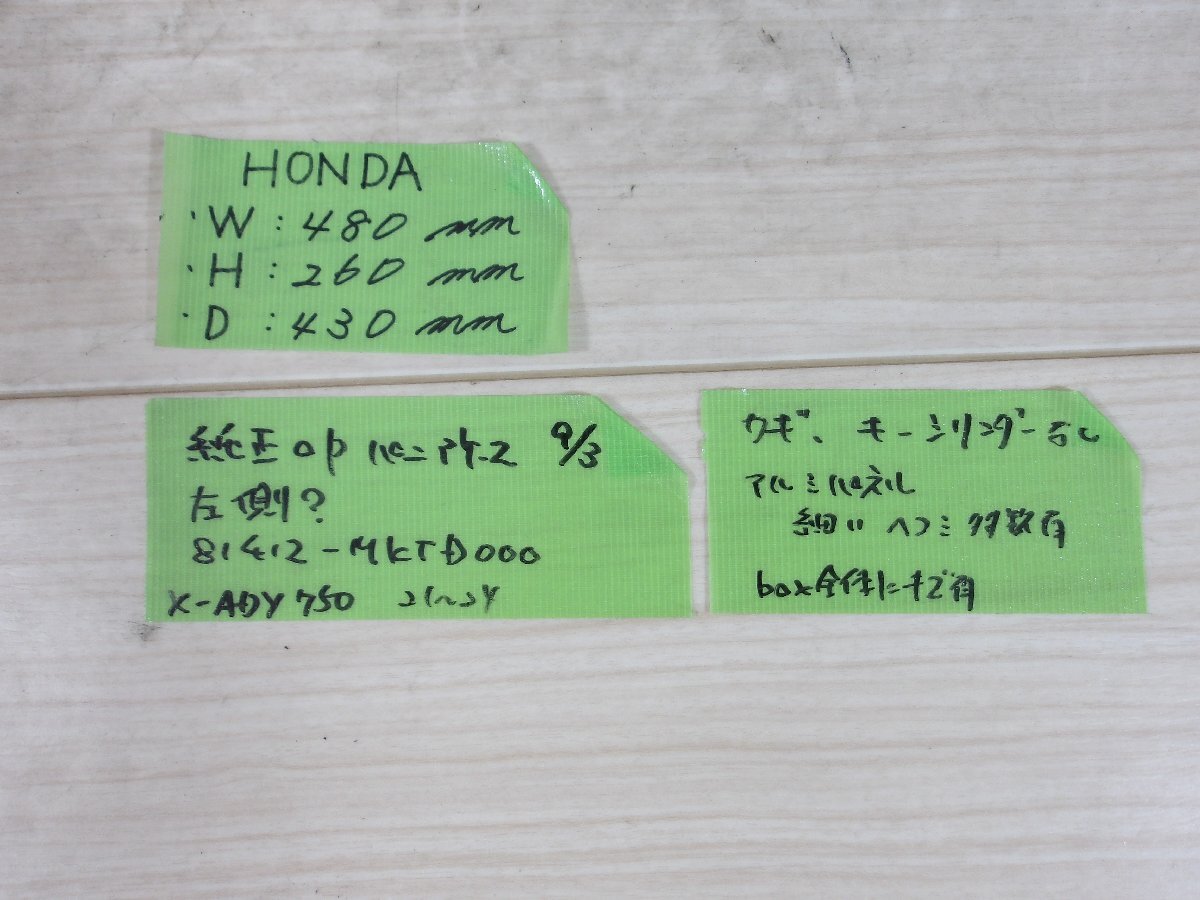 HONDA
・W : 480 mm
・H : 260 mm
・D : 430 mm
純正op パニアケース 9/3
左側?
81412-MKTD000
X-ADV 750 21~24
カギ、キーシリンダーなし
アルミパネル
細いヘコミ多数有
box全体にキズ有